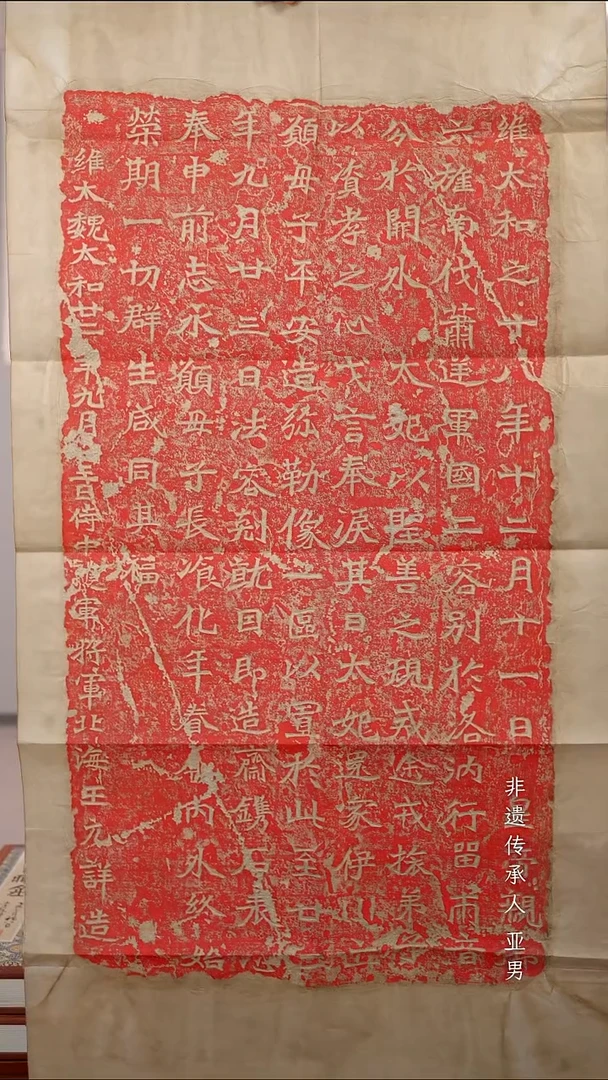 維太和之十八年十二月十一日親
六旌南伐蕭逆軍國二容別於洛汭行留兩音
分於關外太妃以聖善之規戒途戎旅弟子
以資孝之心戈言奉淚其日太妃還家伊川立
願母子平安造弥勒像一區以置於此至廿二
年九月廿三日法容剋就因即造齋鐫石表心
奉申前志永願母子長飡化年眷屬內外終始
榮期一切群生咸同其福
維大魏太和廿二年九月廿三日侍中護軍將軍北海王元詳造
非遗传承人亚男